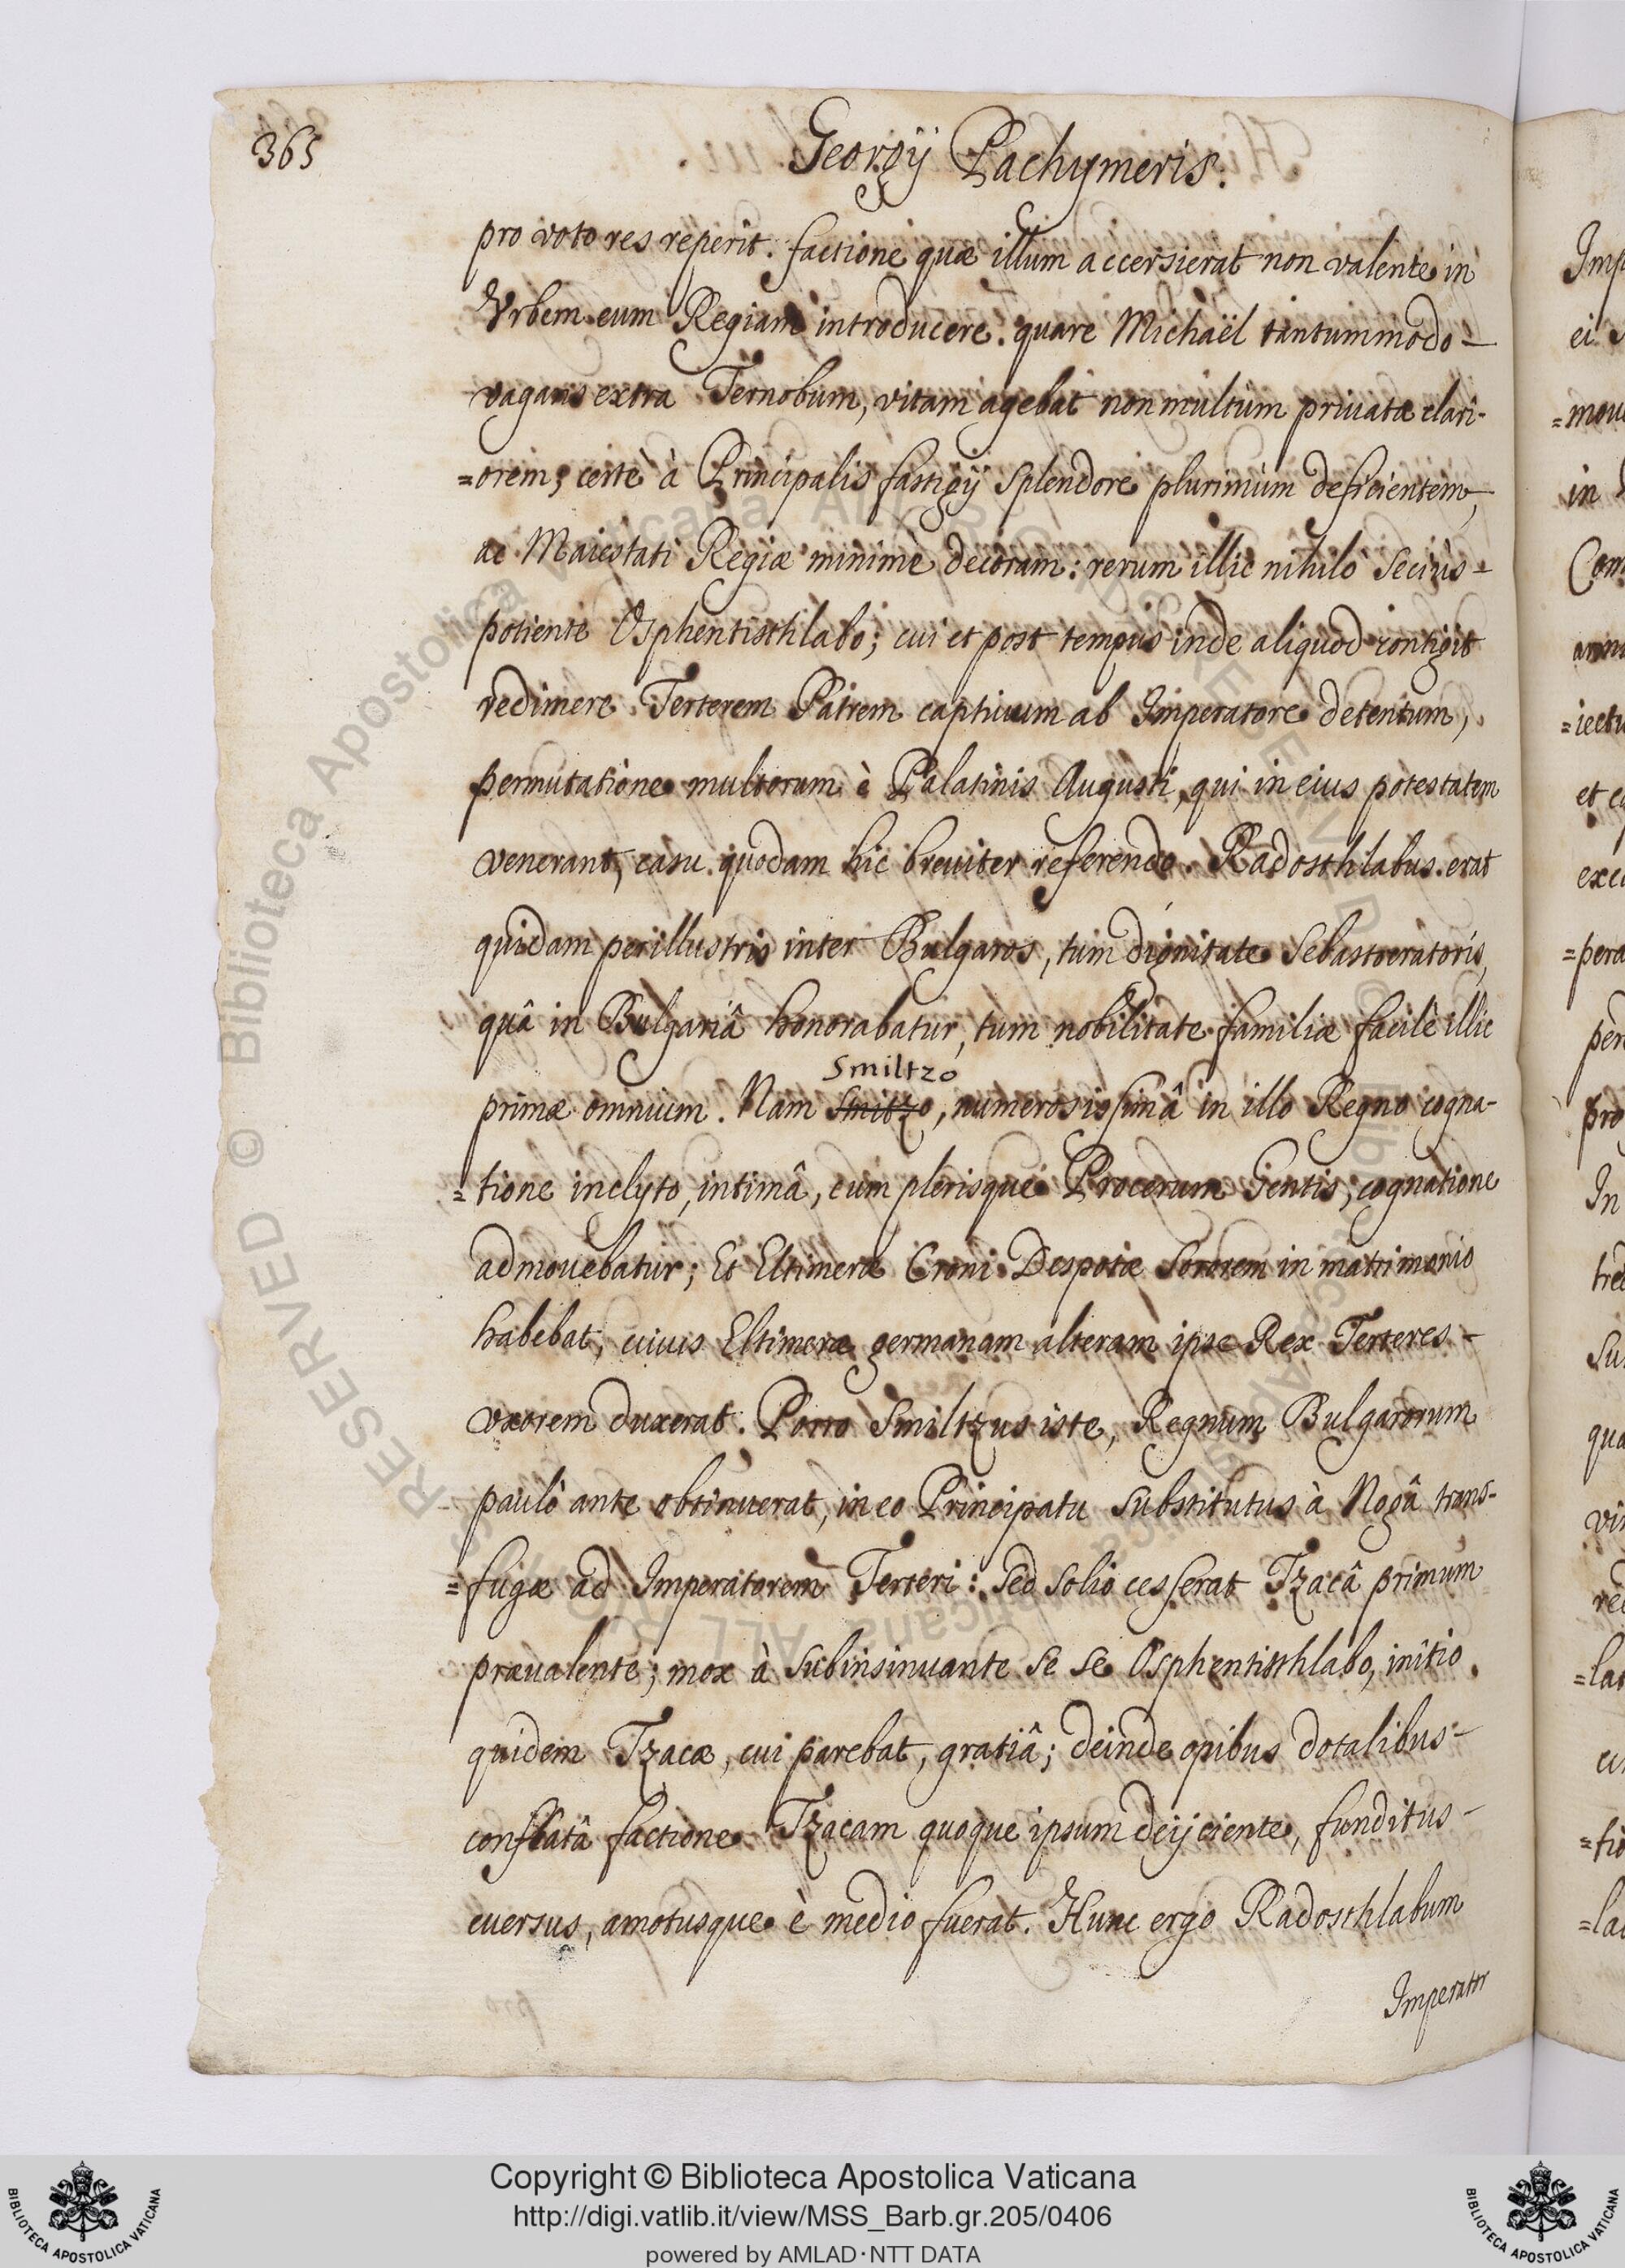 365
Georgij Pachymeris.
pro voto res reperit. factione quæ illum accersierat non valente in
Vrbem eum Regiam introducere. quare Michaël tantummodo -
vagans extra Ternobum, vitam agebat non multùm priuatæ clari-
=orem; certè à Principalis fastigij splendore plurimùm deficientem,
ac Maiestati Regiæ minimè decoram: rerum illic nihilò seciùs -
potiente Osphentisthlabo; cui et post tempus inde aliquod contigit
redimere Terterem Patrem captiuum ab Imperatore detentum,
permutatione multorum è Palatinis Augusti, qui in eius potestatem
venerant, casu quodam hic breuiter referendo. Radosthlabus erat
quidam perillustris inter Bulgaros, tum dignitate Sebastocratoris,
quâ in Bulgariâ honorabatur, tum nobilitate familiæ facilè illic
Smiltzo
primæ omnium. Nam Smitzo, numerosissimâ in illo Regno cogna-
=tione inclyto, intimâ, cum plerisque Procerum Gentis, cognatione
admouebatur; Et Eltimeræ Croni Despotæ Sororem in matrimonio
habebat, cuius Eltimeræ germanam alteram ipse Rex Terteres -
vxorem duxerat. Porro Smiltzus iste, Regnum Bulgarorum
paulò ante obtinuerat, in eo Principatu substitutus à Nogâ trans-
=fugæ ad Imperatorem Terteri: sed solio cesserat Tzacâ primum
præualente; mox à subinsinuante se se Osphentisthlabo, initio
quidem Tzacæ, cui parebat, gratiâ; deinde opibus dotalibus -
conflatâ factione Tzacam quoque ipsum deijciente, funditus -
euersus, amotusque è medio fuerat. Hunc ergo Radosthlabum
Imperator
Copyright © Biblioteca Apostolica Vaticana
http://digi.vatlib.it/view/MSS_Barb.gr.205/0406
powered by AMLAD·NTT DATA